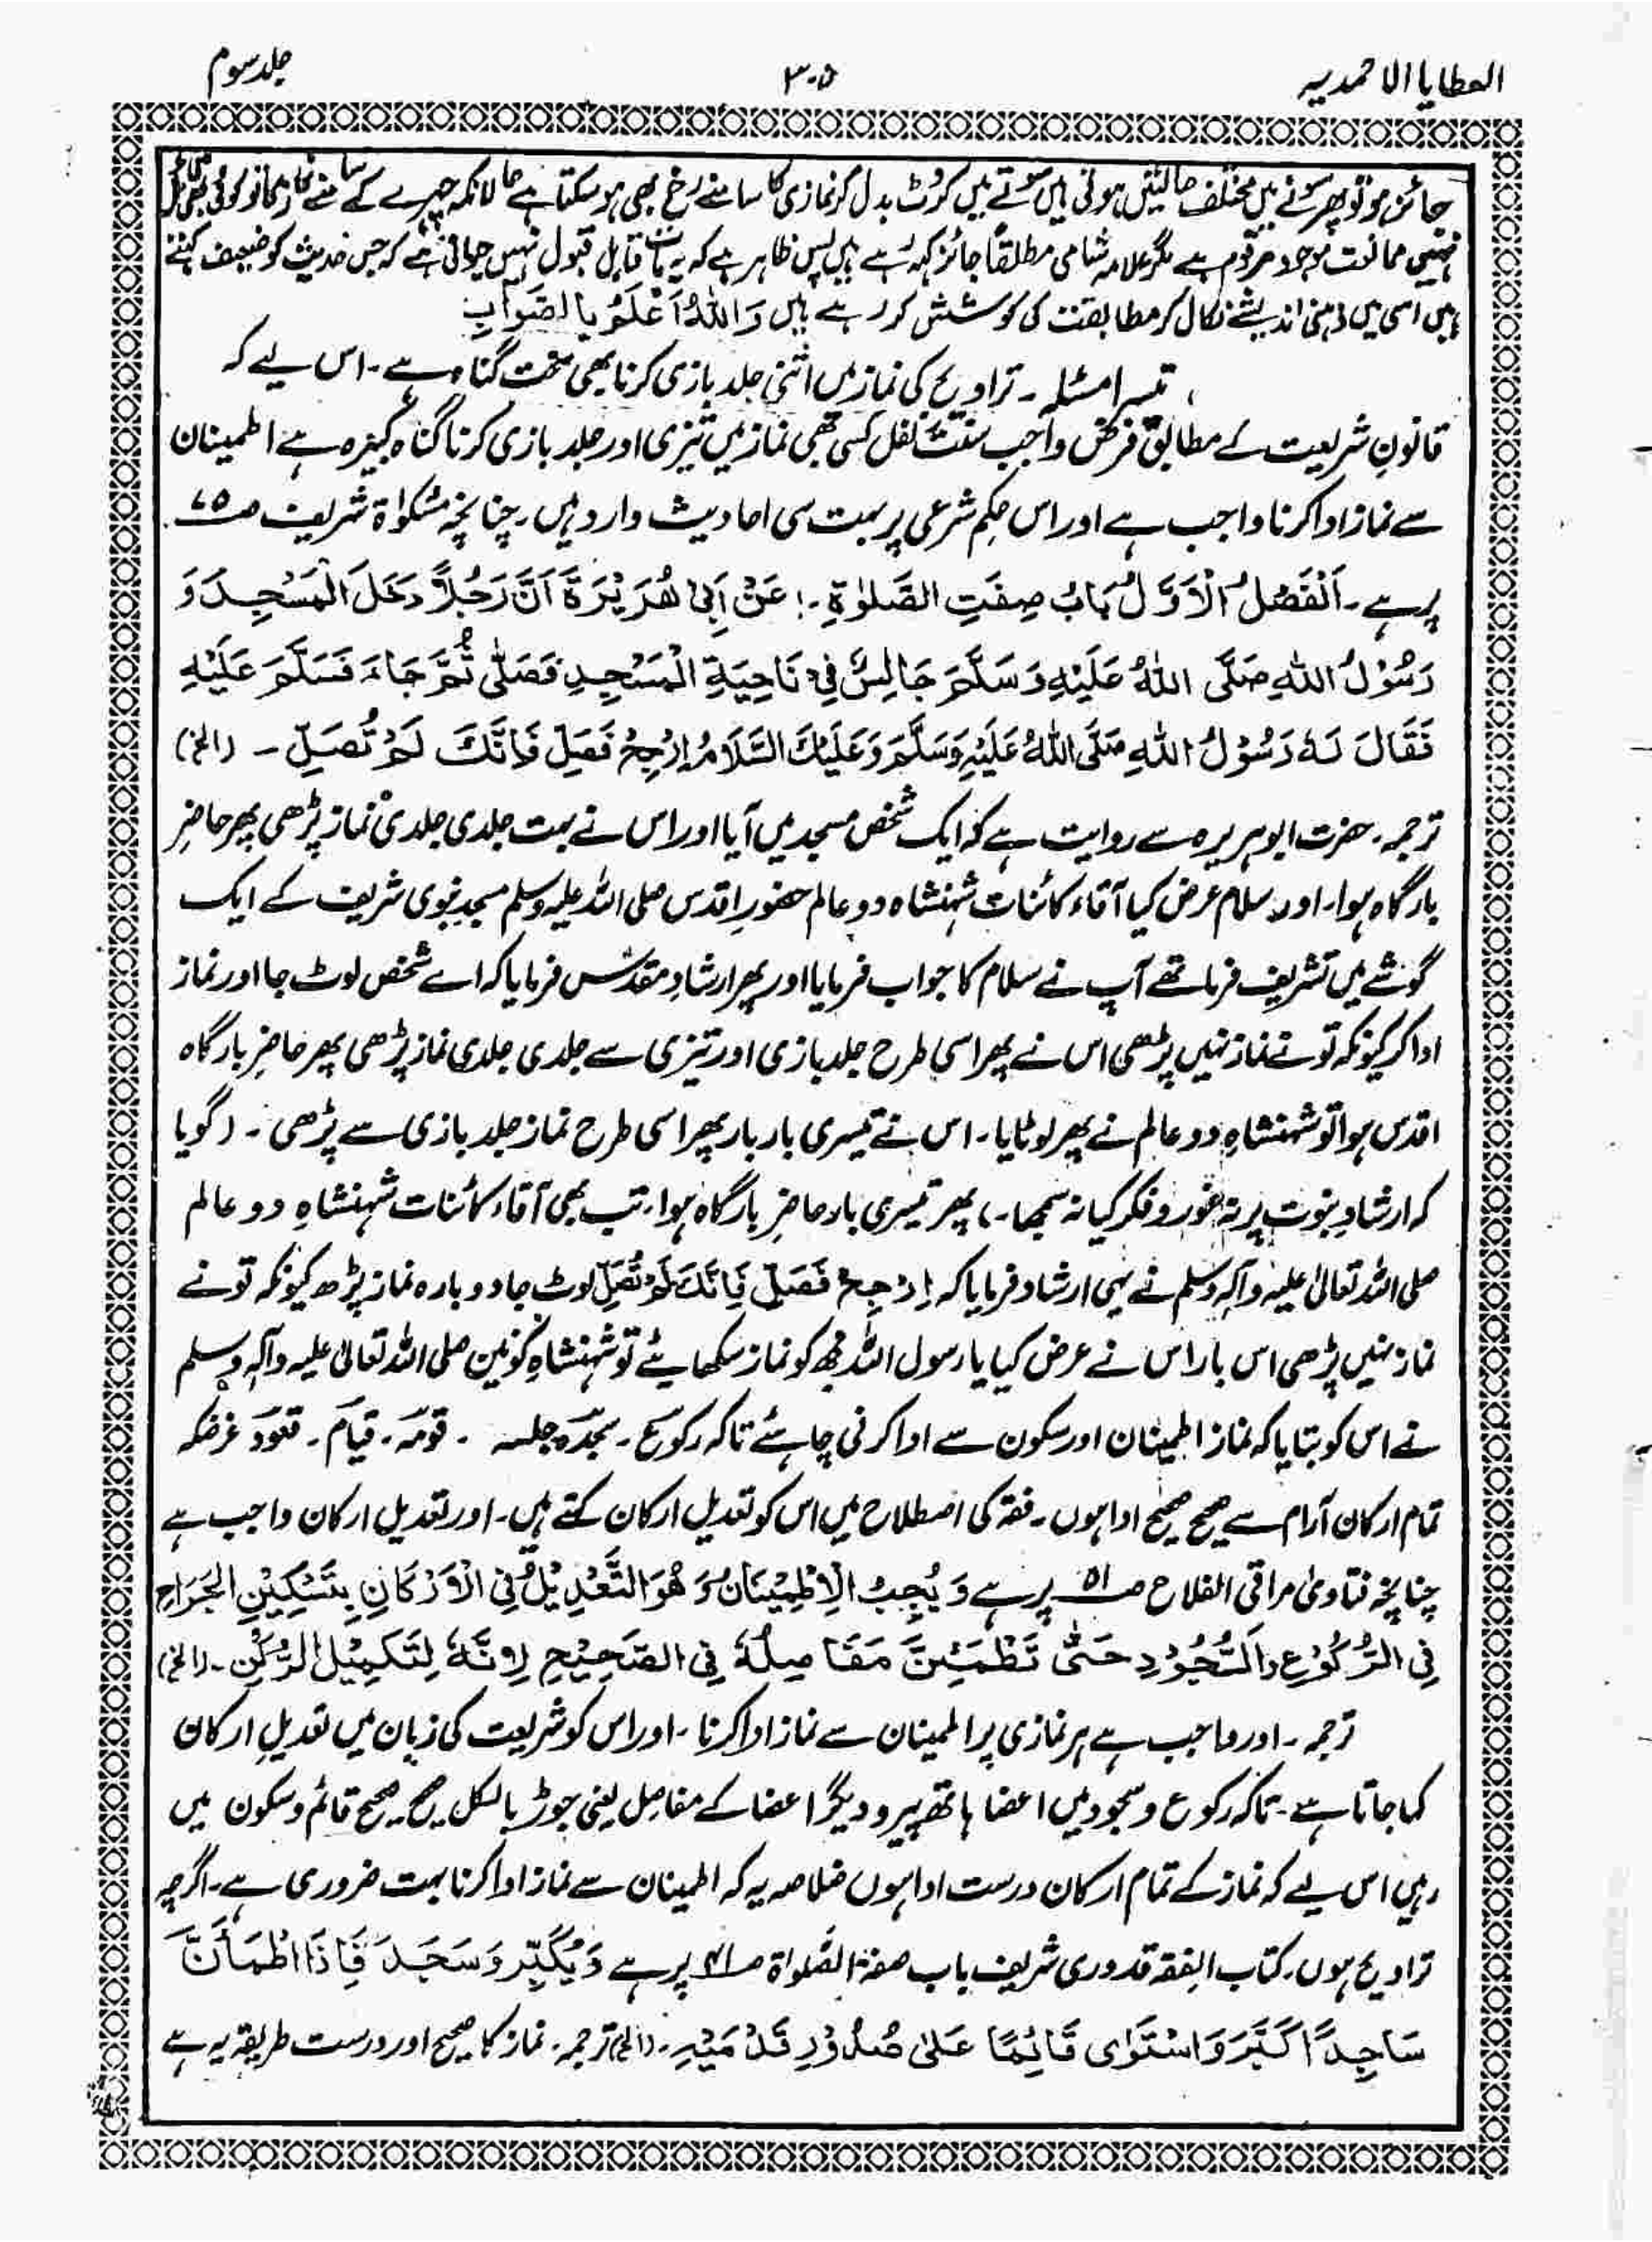 العطایا الاحمدیہ
۳۰۵
جلد سوم
جائز ہو تو پھر سونے میں مختلف حالتیں ہوتی ہیں سوتے میں کروٹ بدل کر نمازی کا سامنے رخ بھی ہو سکتا ہے حالانکہ چہرے کے سامنے نماز کا تو کوئی بھی قائل
نہیں ممانعت موجود مرقوم ہے مگر علامہ شامی مطلقاً جائز کہہ رہے ہیں پس ظاہر ہے کہ یہ بات قابل قبول نہیں ہے کہ جس حدیث کو ضعیف کہتے
ہیں اسی میں ذہنی اندیشے نکال کر مطابقت کی کوشش کر رہے ہیں وَاللّٰهُ اَعْلَمُ بِالصَّوَابِ
تیسرا مسئلہ ۔ تراویح کی نماز میں اتنی جلد بازی کرنا بھی سخت گناہ ہے ۔ اس لیے کہ
قانونِ شریعت کے مطابق فرض واجب سنت نفل کسی بھی نماز میں تیزی اور جلد بازی کرنا گناہ کبیرہ ہے اطمینان
سے نماز ادا کرنا واجب ہے اور اس حکم شرعی پر بہت سی احادیث وارد ہیں ۔ چنانچہ مشکوٰۃ شریف صـ ۷۵
پر ہے ۔ اَلْفَصْلُ الْاَوَّلُ بَابُ صِفَتِ الصَّلٰوةِ ۔! عَنْ اَبِیْ هُرَیْرَةَ اَنَّ رَجُلاً دَخَلَ الْمَسْجِدَ وَ
رَسُوْلُ اللّٰهِ صَلَّی اللّٰهُ عَلَیْهِ وَسَلَّمَ جَالِسٌ فِیْ نَاحِیَةِ الْمَسْجِدِ فَصَلّٰی ثُمَّ جَاءَ فَسَلَّمَ عَلَیْهِ
فَقَالَ لَهٗ رَسُوْلُ اللّٰهِ صَلَّی اللّٰهُ عَلَیْهِ وَسَلَّمَ وَعَلَیْكَ السَّلَامُ اِرْجِعْ فَصَلِّ فَاِنَّكَ لَمْ تُصَلِّ ۔ (الخ)
ترجمہ ۔ حضرت ابوہریرہ سے روایت ہے کہ ایک شخص مسجد میں آیا اور اس نے بہت جلدی جلدی نماز پڑھی پھر حاضرِ
بارگاہ ہوا ۔ اور سلام عرض کیا آقاء کائنات شہنشاہ دو عالم حضورِ اقدس صلی اللہ علیہ وسلم مسجد نبوی شریف کے ایک
گوشے میں تشریف فرما تھے آپ نے سلام کا جواب فرمایا اور پھر ارشادِ مقدس فرمایا کہ اے شخص لوٹ جا اور نماز
ادا کر کیونکہ تو نے نماز نہیں پڑھی اس نے پھر اسی طرح جلد بازی اور تیزی سے جلدی جلدی نماز پڑھی پھر حاضرِ بارگاہ
اقدس ہوا تو شہنشاہِ دو عالم نے پھر لوٹایا ۔ اس نے تیسری بار بار پھر اسی طرح نماز جلد بازی سے پڑھی ۔ (گویا
کہ ارشادِ نبوت پر نہ غور و فکر کیا نہ سمجھا ۔، پھر تیسری بار حاضرِ بارگاہ ہوا ۔ تب بھی آقاء کائنات شہنشاہِ دو عالم
صلی اللہ تعالیٰ علیہ وآلہ وسلم نے یہی ارشاد فرمایا کہ اِرْجِعْ فَصَلِّ فَاِنَّكَ لَمْ تُصَلِّ لوٹ جا دوبارہ نماز پڑھ کیونکہ تو نے
نماز نہیں پڑھی اس بار اس نے عرض کیا یا رسول اللہ مجھ کو نماز سکھایئے تو شہنشاہِ کونین صلی اللہ تعالیٰ علیہ وآلہٖ وسلم
نے اس کو بتایا کہ نماز اطمینان اور سکون سے ادا کرنی چاہئے تاکہ رکوع ۔ سجدہ جلسہ ۔ قومہ ۔ قیام ۔ قعود غرضکہ
تمام ارکان آرام سے صحیح صحیح ادا ہوں ۔ فقہ کی اصطلاح میں اس کو تعدیل ارکان کہتے ہیں ۔ اور تعدیل ارکان واجب ہے
چنانچہ فتاویٰ مراقی الفلاح صـ ۱۵ پر ہے وَ یُجِبُ الْاِطْمِیْنَانُ وَ هُوَ التَّعْدِیْلُ فِی الْاَرْكَانِ بِتَسْكِیْنِ الْجَوَارِحِ
فِی الرُّكُوْعِ وَالسُّجُوْدِ حَتّٰی تَطْمَئِنَّ مَفَاصِلُهٗ فِی الصَّحِیْحِ لِاَنَّهٗ لِتَكْمِیْلِ الرُّكْنِ ۔ (الخ)
ترجمہ ۔ اور واجب ہے ہر نمازی پر اطمینان سے نماز ادا کرنا ۔ اور اس کو شریعت کی زبان میں تعدیلِ ارکان
کہا جاتا ہے ۔ تاکہ رکوع و سجود میں اعضا ہاتھ پیر و دیگر اعضا کے مفاصِل یعنی جوڑ بالکل صحیح صحیح قائم و سکون میں
رہیں اس لیے کہ نماز کے تمام ارکان درست ادا ہوں خلاصہ یہ کہ اطمینان سے نماز ادا کرنا بہت ضروری ہے ۔ اگرچہ
تراویح ہوں ۔ کتاب الفقہ قدوری شریف باب صفۃ الصلوٰۃ صـ پر ہے وَیُكَبِّر وَسَجَدَ فَاِذَا اطْمَأَنَّ
سَاجِدًا كَبَّرَ وَاسْتَوٰی قَائِمًا عَلٰی صُدُوْرِ قَدْمَیْهِ ۔ (الخ) ترجمہ ۔ نماز کا صحیح اور درست طریقہ یہ ہے